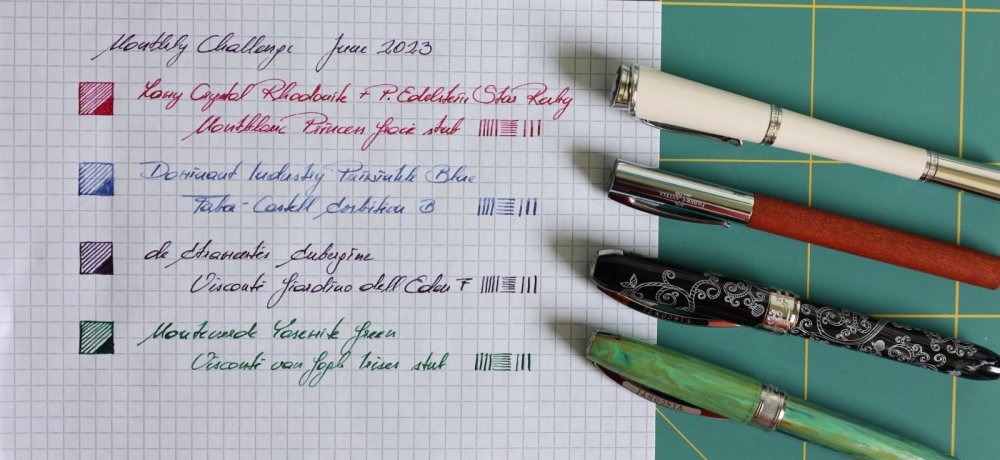 Monthly Challenge June 2023
Lamy Crystal Rhodonite + P. Edelstein Star Ruby
Montblanc Princess Grace stub
Dominant Industry Periwinkle Blue
Faber-Castell Ambition B
de Atramentis Aubergine
Visconti Giardino dell Eden F
Monteverde Yosemite Green
Visconti van Gogh Irises stub
FABER-CASTELL
VISCONTI
VISCONTI